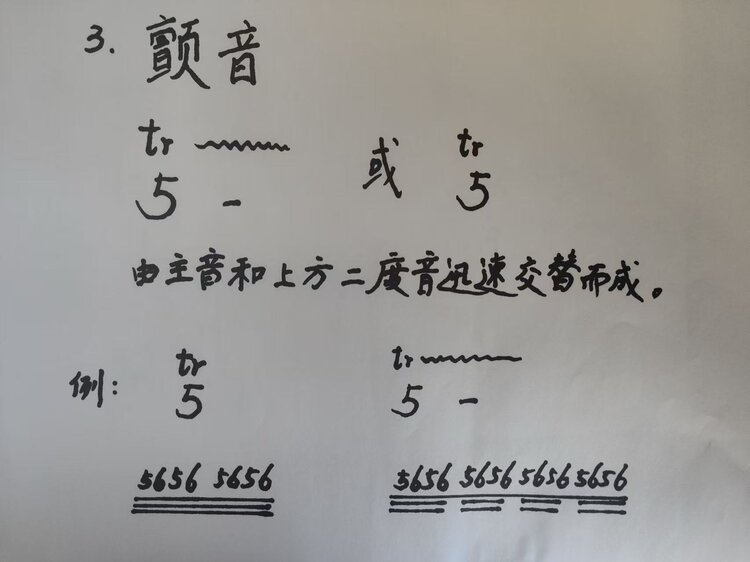 3. 颤音
tr~~~ 或 tr
5 - 5
由主音和上方二度音迅速交替而成。
例: tr tr~~~
5 5 -
5656 5656 5656 5656 5656 5656